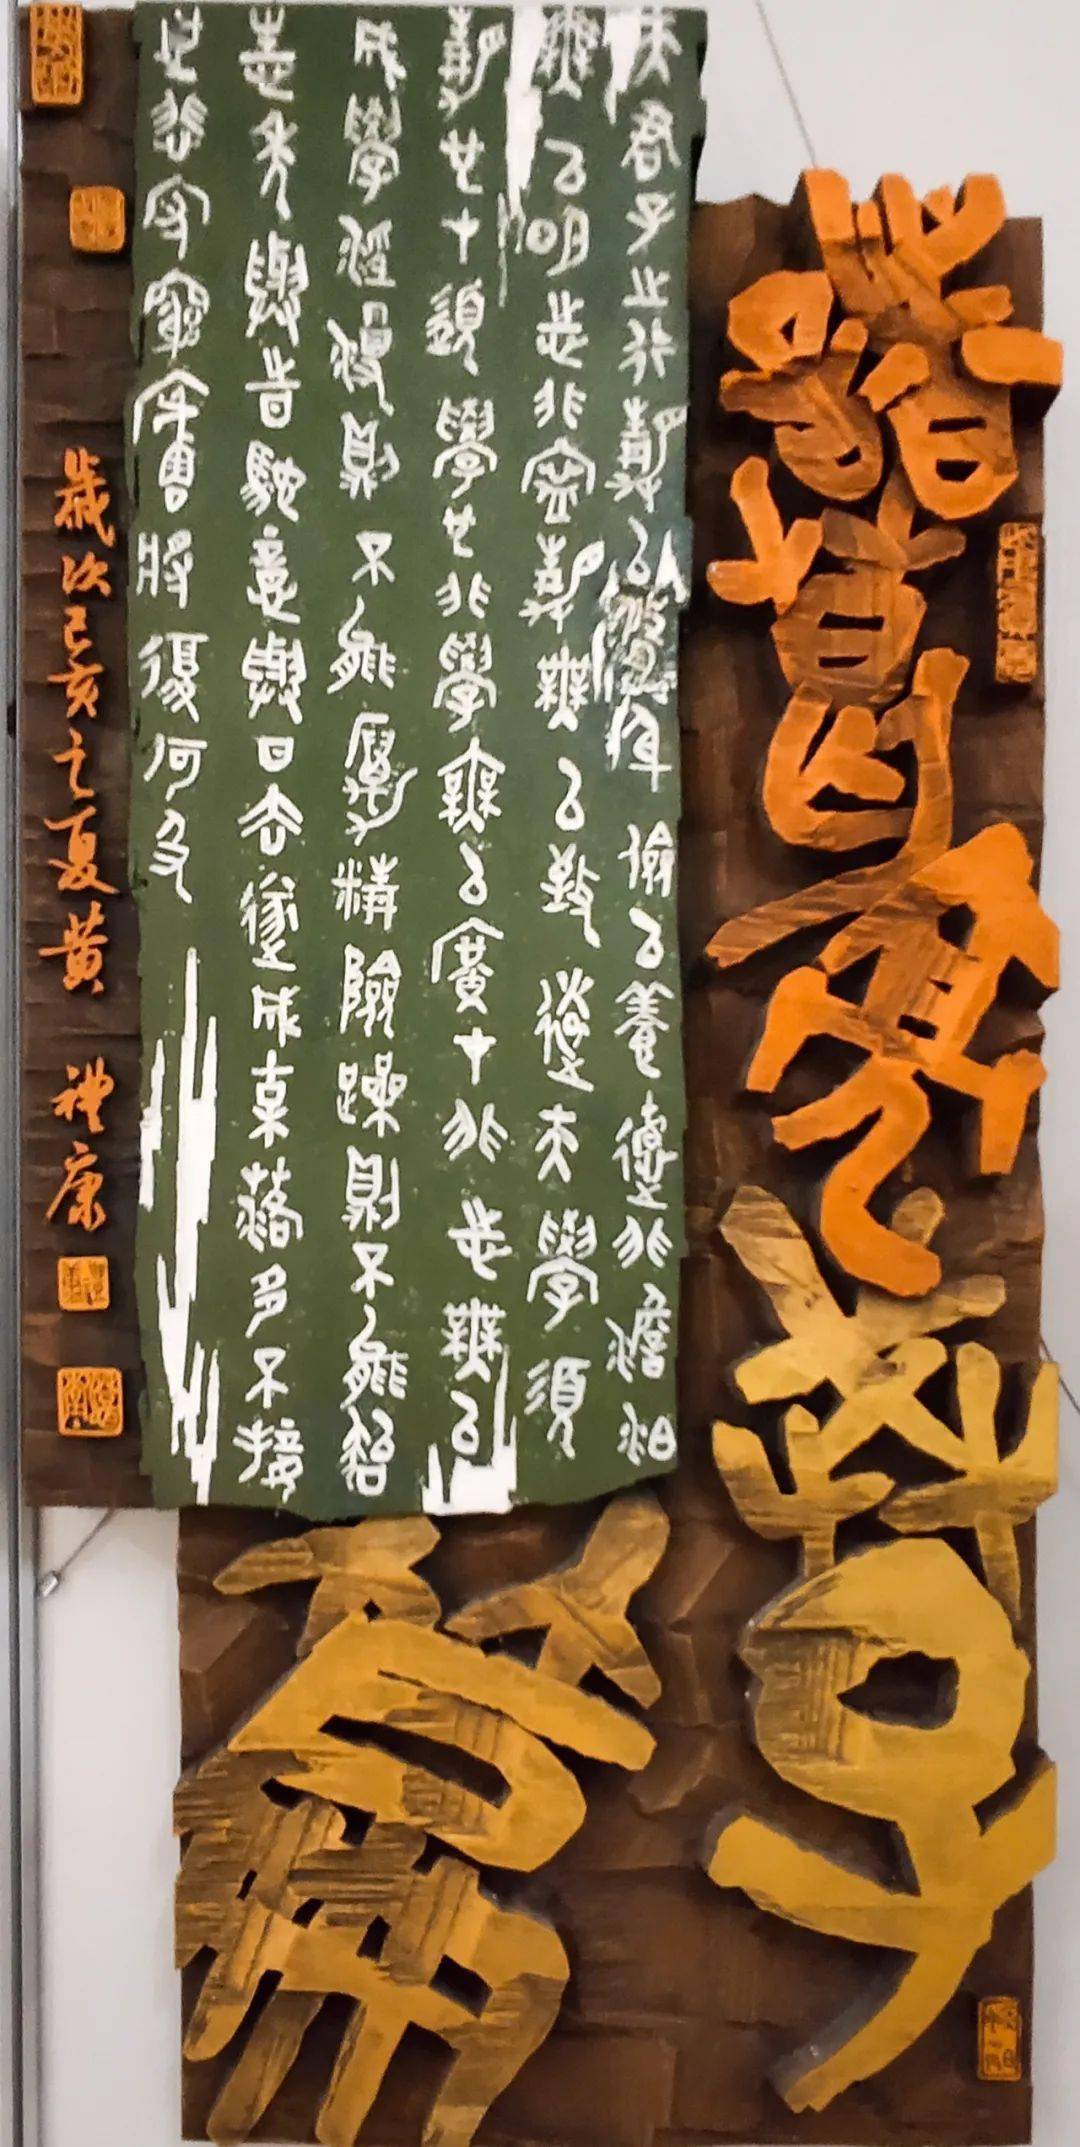 諸葛亮誡子
書
夫君子之行靜以修身儉以養德非澹泊
無以明志非寧靜無以致遠夫學須
靜也才須學也非學無以廣才非志無以
成學淫慢則不能勵精險躁則不能冶
性年與時馳意與日去遂成枯落多不接
世悲守窮廬曾將復何及
歲次己亥之夏黃禮康